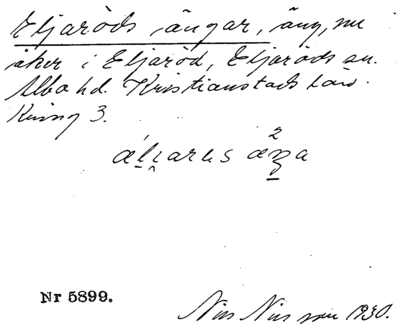 Eljaröds ängar, äng, nu
åker i Eljaröd, Eljaröds sn.
Albo hd. Kristianstads län.
Kring 3.
Nr 5899.
Nils Nilsson 1930.